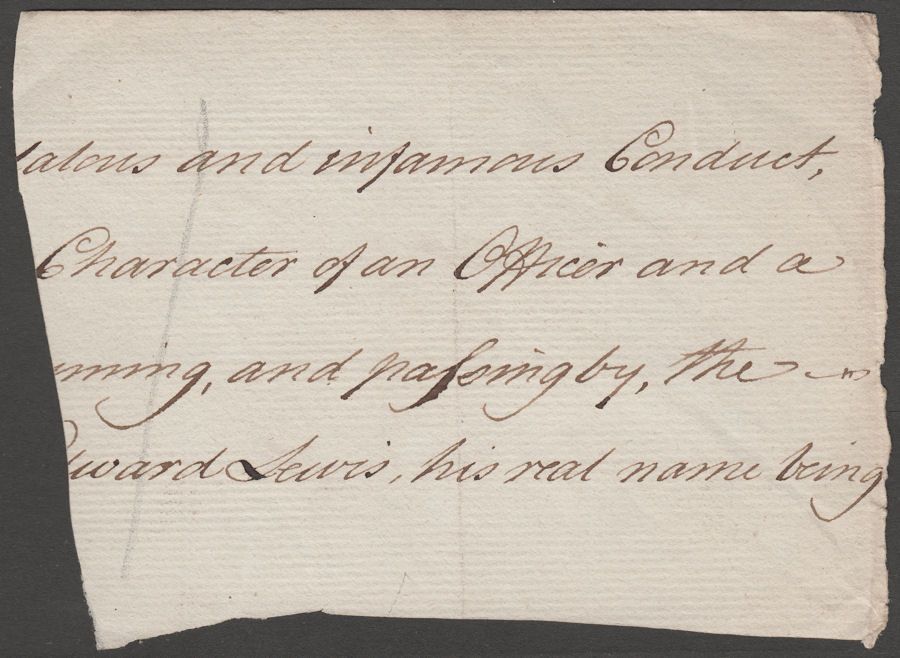 alous and infamous Conduct,
Character of an Officer and a
ming, and paſsing by, the
ward Lewis, his real name being